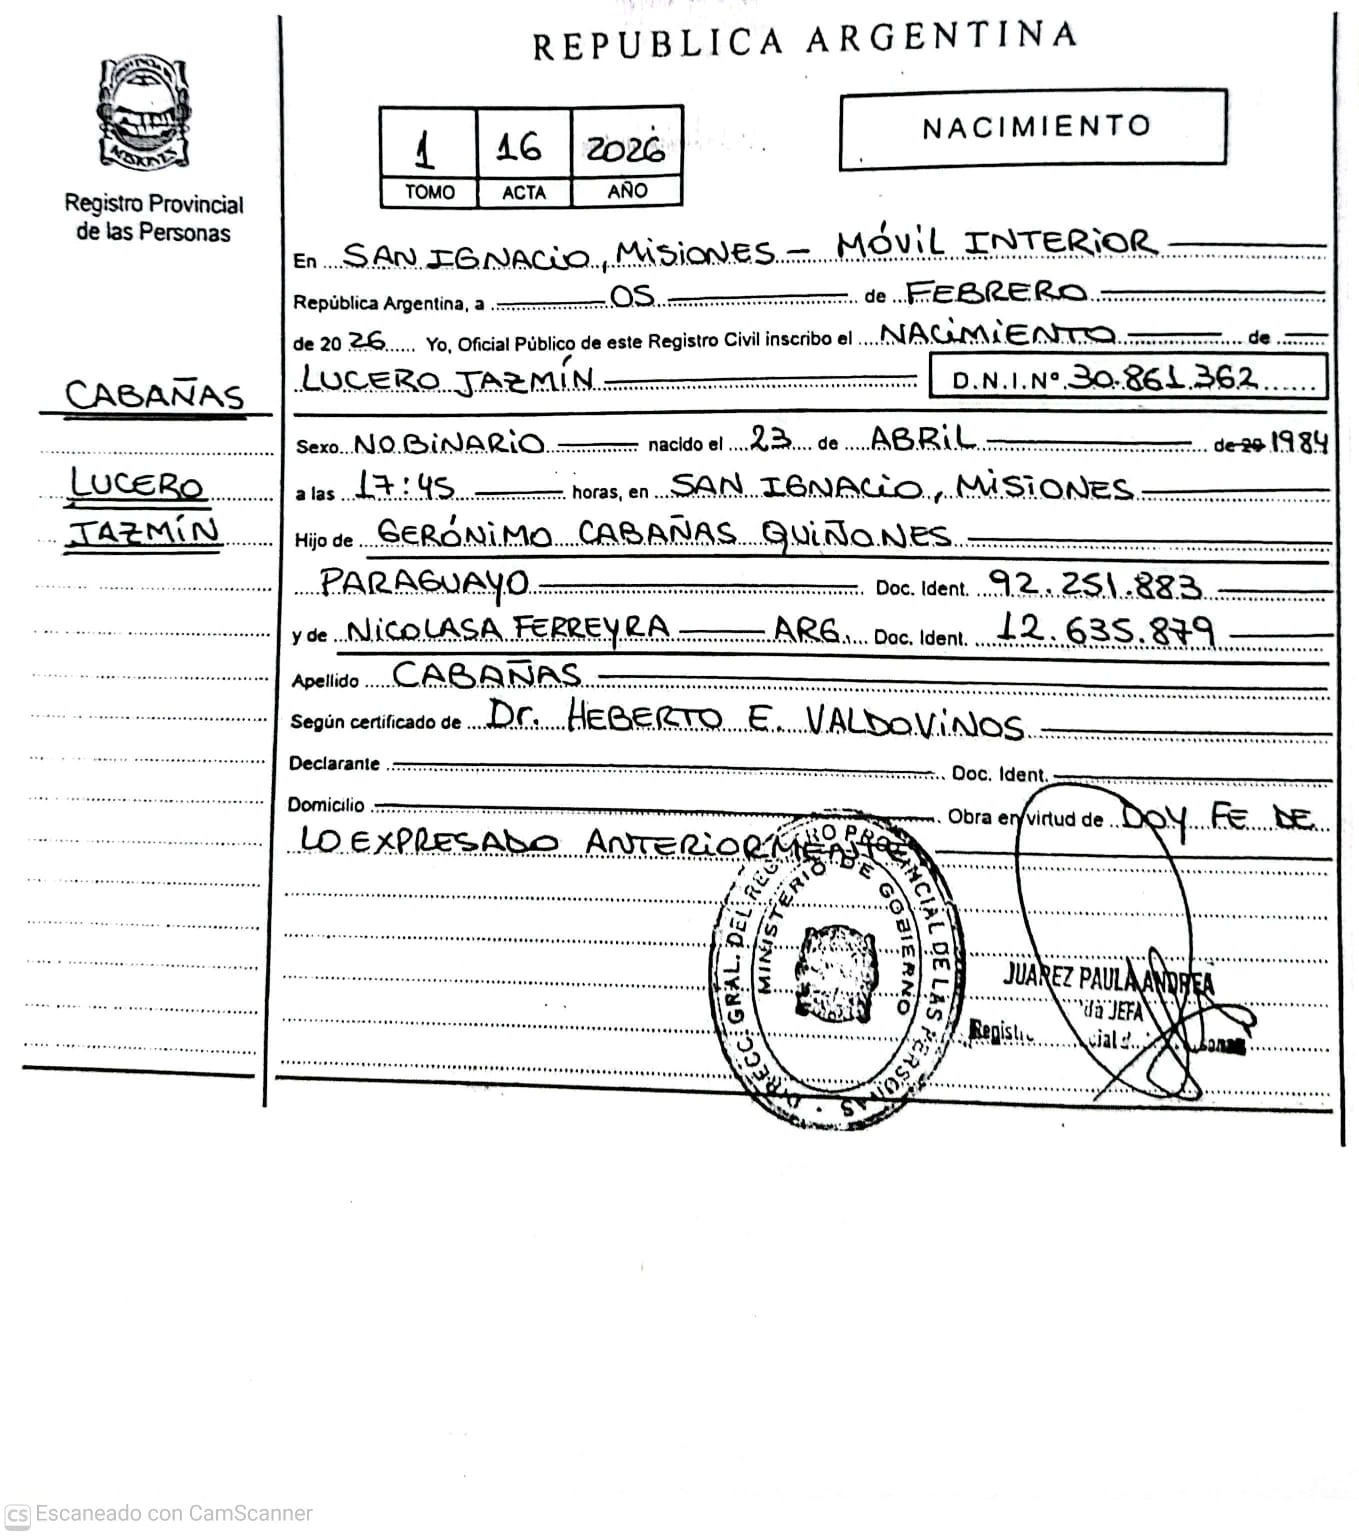 REPUBLICA ARGENTINA
MISIONES
Registro Provincial
de las Personas
1 16 2026
TOMO ACTA AÑO
NACIMIENTO
En SAN IGNACIO, MISIONES - MÓVIL INTERIOR
República Argentina, a 05 de FEBRERO
de 20 26 Yo, Oficial Público de este Registro Civil inscribo el NACIMIENTO de
LUCERO JAZMÍN D.N.I.Nº 30.861.362
CABAÑAS
LUCERO
JAZMÍN
Sexo NO BINARIO nacido el 23 de ABRIL de 20 1984
a las 17:45 horas, en SAN IGNACIO, MISIONES
Hijo de GERÓNIMO CABAÑAS QUIÑONES
PARAGUAYO Doc. Ident. 92.251.883
y de NICOLASA FERREYRA ARG. Doc. Ident. 12.635.879
Apellido CABAÑAS
Según certificado de Dr. HEBERTO E. VALDOVINOS
Declarante Doc. Ident.
Domicilio Obra en virtud de DOY FE DE
LO EXPRESADO ANTERIORMENTE
DIRECC. GRAL. DEL REGISTRO PROVINCIAL DE LAS PERSONAS
MINISTERIO DE GOBIERNO
JUAREZ PAULA ANDREA
JEFA
CS Escaneado con CamScanner